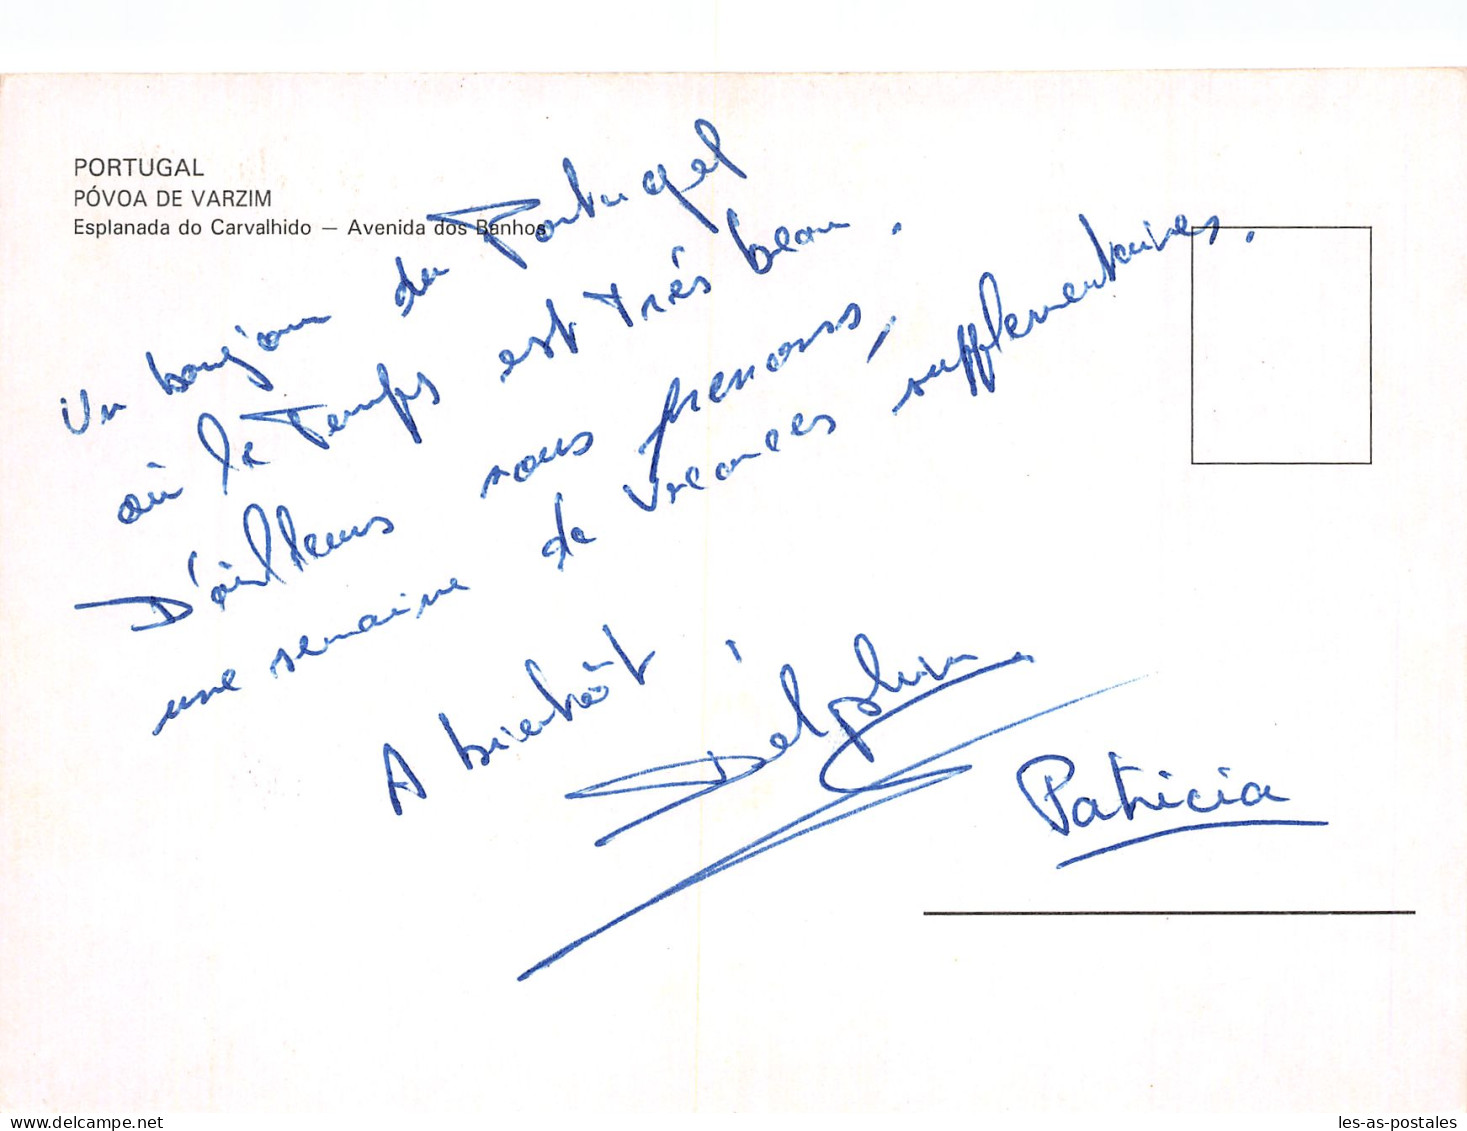 PORTUGAL
PÓVOA DE VARZIM
Esplanada do Carvalhido — Avenida dos Banhos
Un bonjour du Portugal
où le Temps est très beau.
D'ailleurs nous prenons,
une semaine de vacances supplémentaires.
A bientôt
Delphine
Patricia
les-as-postales